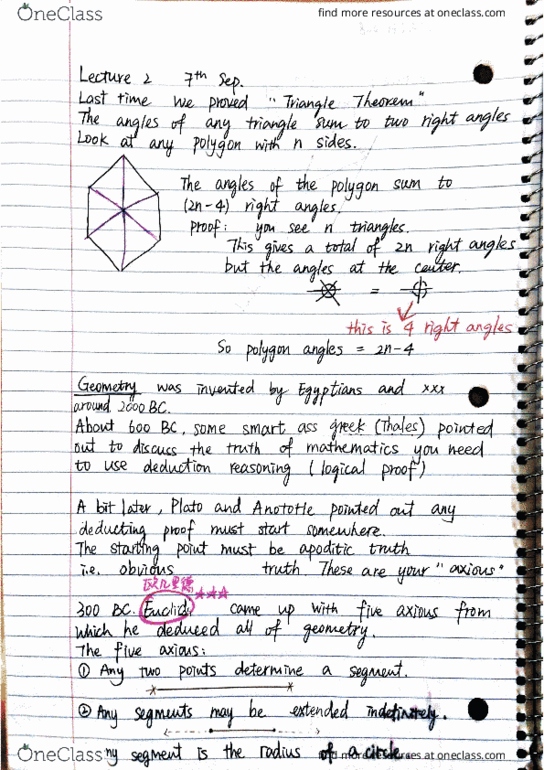 OneClass
find more resources at oneclass.com
Lecture 2 7th Sep.
Last time we proved "Triangle Theorem"
The angles of any triangle sum to two right angles
Look at any polygon with n sides.
The angles of the polygon sum to
(2n-4) right angles.
Proof: you see n triangles.
This gives a total of 2n right angles
but the angles at the center.
=
this is 4 right angles
So polygon angles = 2n-4
Geometry was invented by Egyptians and xxx
around 2000 BC.
About 600 BC, some smart ass greek (Thales) pointed
out to discuss the truth of mathematics you need
to use deduction reasoning (logical proof)
A bit later, Plato and Anototle pointed out any
deducting proof must start somewhere.
The starting point must be apoditic truth
i.e. obvious truth. These are your "axious"
欧几里德
300 BC. Euclid came up with five axious from
which he deduced all of geometry.
The five axious:
① Any two points determine a segment.
② Any segments may be extended indefinitely.
ny segment is the radius of a circle
OneClass
find more resources at oneclass.com